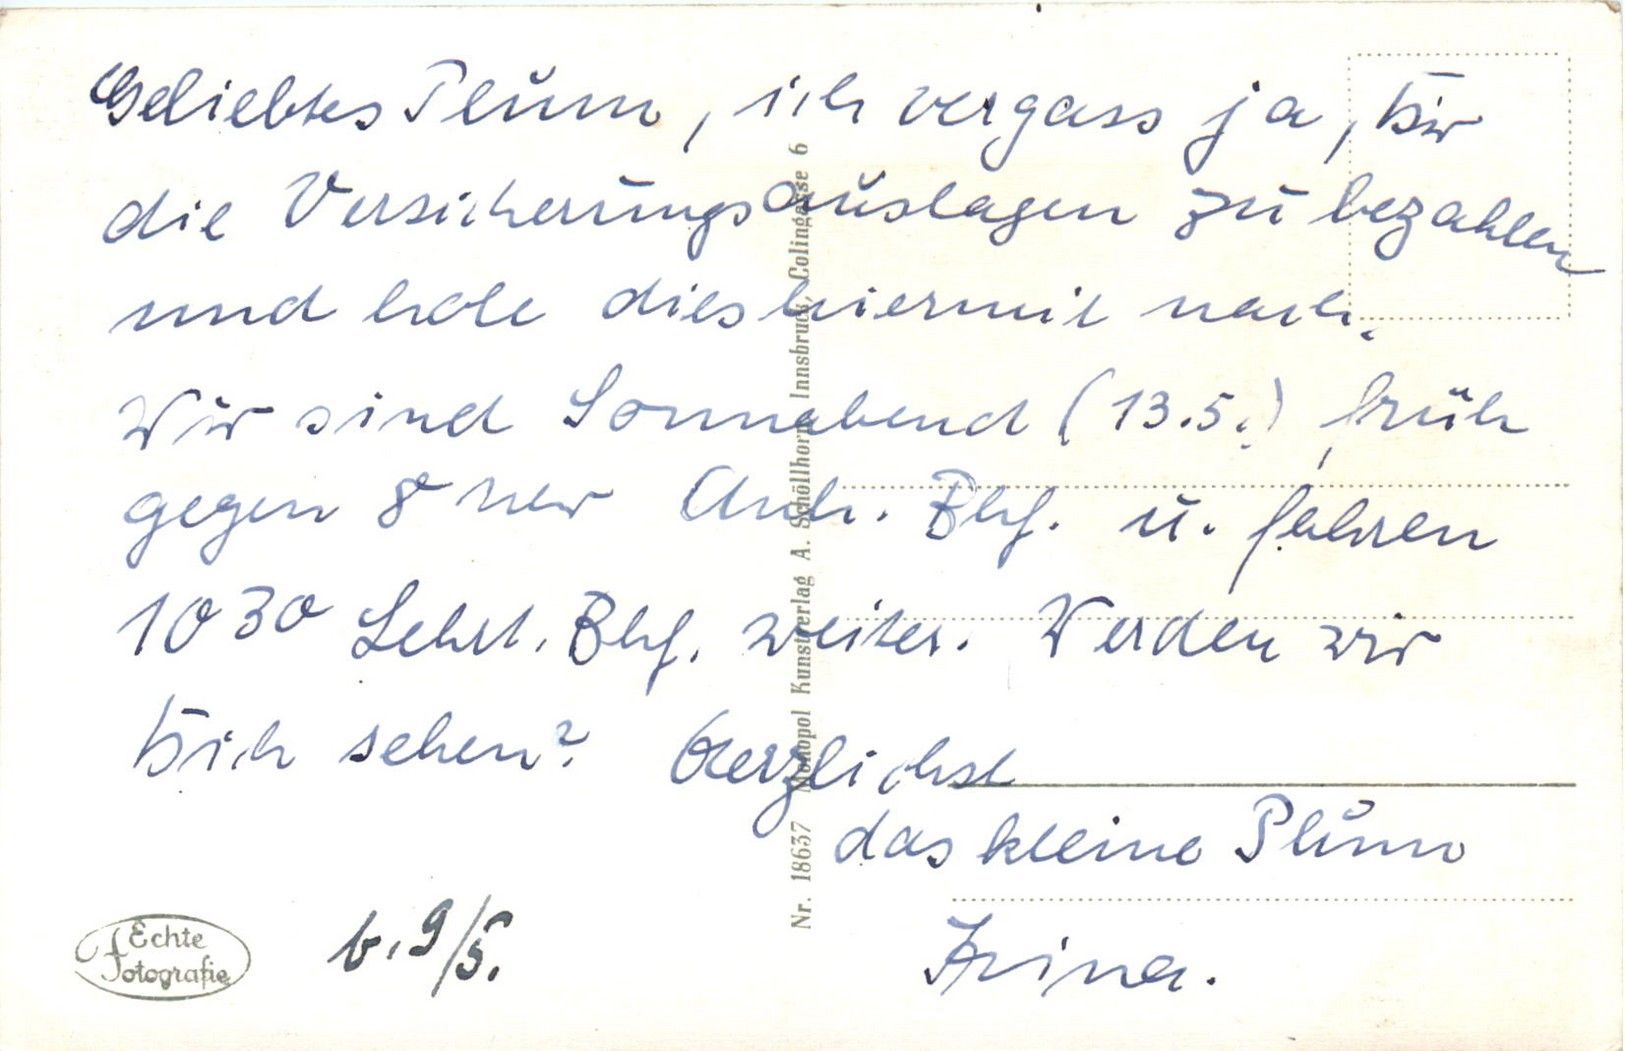 Geliebtes Plum, ich vergass ja, Dir
die Versicherungsauslagen zu bezahlen
und hole dies hiermit nach.
Wir sind Sonnabend (13.5.) früh
gegen 8 Anh. Bhf. u. fahren
1030 Lehrt. Bhf. weiter. Werden wir
Dich sehen? Herzlichst
das kleine Plum
Irina.
b. 9/5.
Echte
Fotografie
Nr. 18637 Monopol Kunstverlag A. Schöllhorn, Innsbruck, Colingasse 6